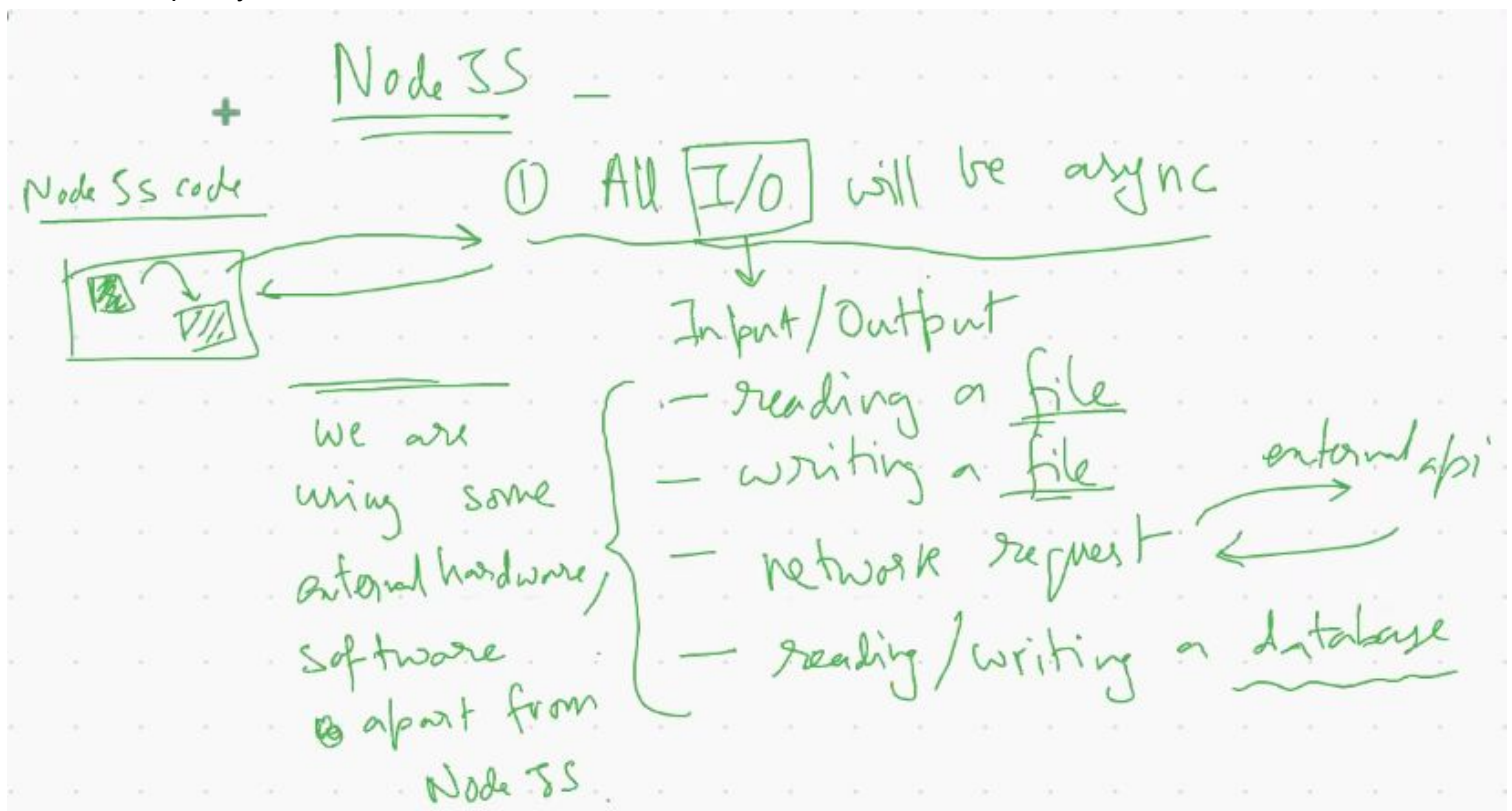 Node JS -
Node Js code
① All I/O will be async
Input/Output
- reading a file
- writing a file
- network request
external api
- reading/writing a database
we are
using some
external hardware,
software
apart from
Node JS